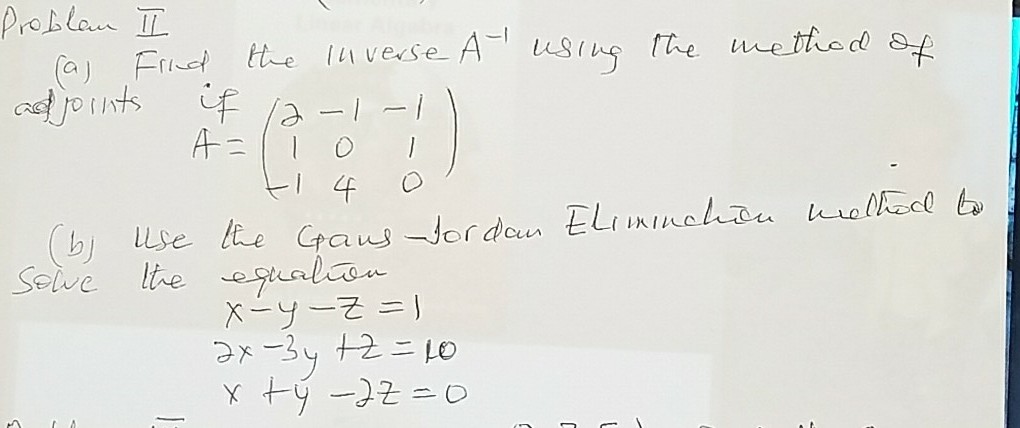 Problem II
(a) Find the inverse A⁻¹ using the method of
adjoints if
A = (2 -1 -1
1 0 1
-1 4 0)
(b) Use the Gaus-Jordan Elimination method to
Solve the equation
x-y-z=1
2x-3y+z=10
x+y-2z=0